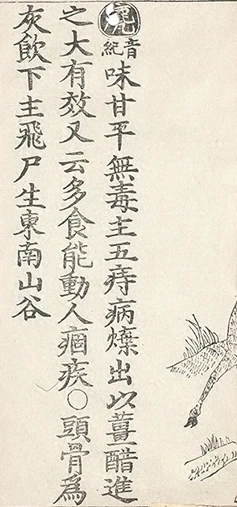 麂
音紀
味甘平無毒主五痔病煠出以薑醋進
之大有效又云多食能動人痼疾○頭骨為
灰飲下主飛尸生東南山谷